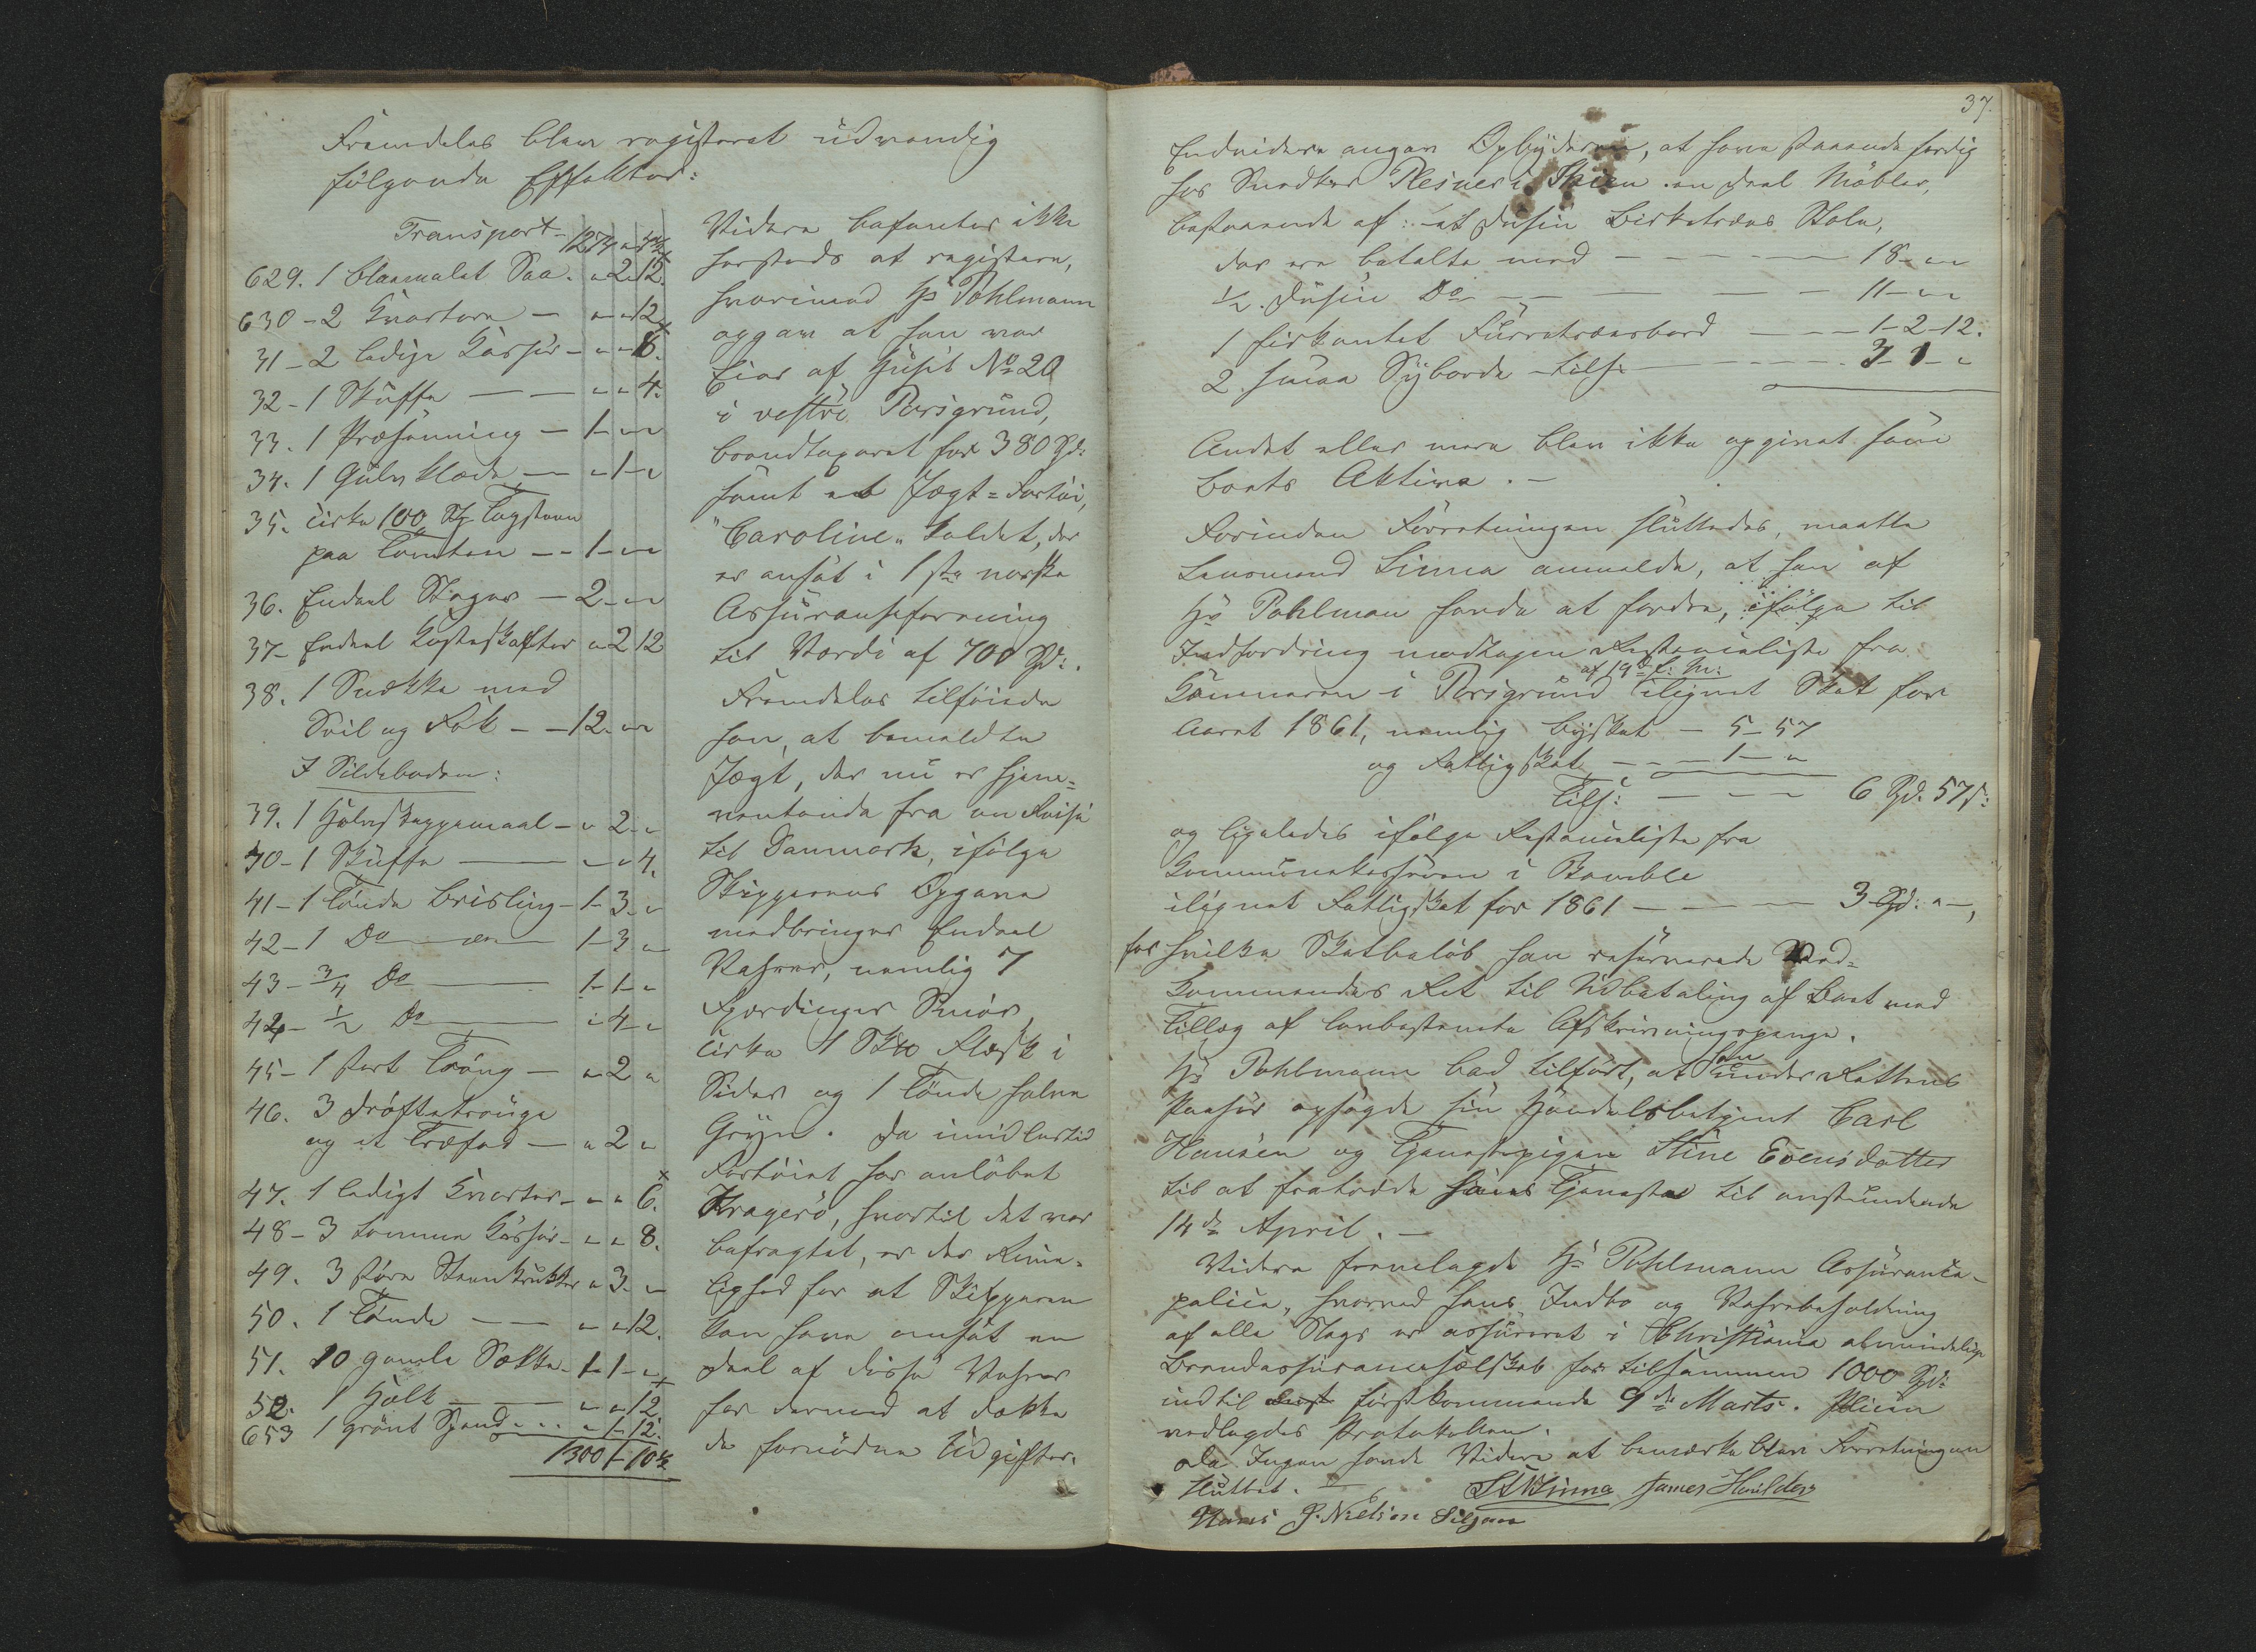 Fremdeles blev registeret udvendig
følgende Effekter:
Transport - 1274 "
629. 1 blaamalet Saa - " 2 12.
630 - 2 Qvartere - " " 12
31 - 2 ledige Kasser - " " 8.
32 - 1 Skuffe - " " 4.
33. 1 Præsenning - 1 - " "
34. 1 Gulvklæde - " 1 - "
35. cirka 100 St. Tagsteen
paa Tomten - - 1 - " "
36. Endeel Stager - 2 - " "
37 - Endeel Kosteskafter " 2 12
38. 1 Snække med
Seil og Fok - - 12. " "
I Sildeboden:
39. 1 Halvskjeppemaal - " 2 - "
40 - 1 Skuffe - " " 4.
41 - 1 Tønde Brisling - 1 - 3 - "
42 - 1 Do - 1 - 3 "
43 - 3/4 Do - 1 - 1 - "
44 - 1/2 Do - " 4 - "
45 - 1 stort Traug - " 2 "
46. 3 Drøftetrauge
og et Træfad - " 2 "
47. 1 ledigt Qvarter - " " 6.
48 - 3 tomme Kasser - " " 8.
49. 3 store Steenkrukker " 3. "
50. 1 Tønde - - " " 12.
51. 10 gamle Sække - 1 - 1 - "
52. 1 Holk - " " 12
653 1 grønt Spand - " 1 - 12.
1300 1 - 10 1/2
Videre befantes ikke
hersteds at registere,
hvorimod Hr Pohlmann
opgav at han var
Eier af Huset No 20
i vestre Porsgrund,
brandtaxeret for 380 Spd:
samt et Jægt-Fartøi,
"Caroline" kaldet, der
er ansat i 1ste norske
Assuranseforening
til Værdi af 700 Spd:.
Fremdeles tilføiede
han, at bemeldte
Jægt, der nu er hjem-
ventende fra en Reise
til Danmark, ifølge
Skipperens Opgave
medbringer Endeel
Vahrer, nemlig 7
Fjerdinger Smør,
cirka 4 Flesk i
Sider og 1 Tønde halve
Gryn. Da imidlertid
Fartøiet har anløbet
Kragerø, hvortil det var
befragtet, er der Rime-
lighed for at Skipperen
kan have omsat en
Deel af disse Vahrer
for dermed at dække
de fornødne Udgifter.
37.
Endvidere angav Opbyderen, at have staaende færdig
hos Snedker Plesner i Skien en Deel Møbler,
bestaaende af: et Dusin Birketræes Stole,
der ere betalte med - - - - - 18 - " "
1/2 Dusin Do - - - - 11 - " "
1 firkantet Furretræesbord - - - 1 - 2 - 12.
2 smaa Syborde tils: - - - - 3 - 1 - "
Andet eller mere blev ikke opgivet som
Boets Aktiva. -
Forinden Forretningen sluttedes, maatte
Lensmand Linna anmelde, at han af
Hr Pohlman havde at fordre, ifølge til
Indfordring modtagen Restanceliste fra
af 19de f: M:
Kæmneren i Porsgrund ilignet Skat for
Aaret 1861, nemlig Byskat - 5 - 57
og Fattigskat - - - 1 - "
Tils: - - - 6 Spd. 57 s:
og ligeledes ifølge Restanceliste fra
Kommunekassereren i Bamble
ilignet Fattigskat for 1861 - - - - 3 Spd: " -,
for hvilke Skattebeløb han reserverede Ved-
kommendes Ret til Udbetaling af Boet med
Tillæg af lovbestemte Afskrivningspenge.
Hr Pohlmann bad tilført, at han under Rettens
Paahør opsagde sin Handelsbetjent Carl
Hansen og Tjenestepigen Stine Evensdatter
til at fratræde hans Tjeneste til anstundende
14de April. -
Videre fremlagde Hr Pohlmann Assurance-
police, hvorved hans Indbo og Vahrebeholdning
af alle Slags er assureret i Christiania almindelige
Brandassuranceselskab for tilsammen 1000 Spd:
indtil førstkommende 9de Marts. Policen
vedlagdes Protokollen.
Da Ingen havde Videre at bemærke blev Forretningen
sluttet. -
Linna James
Hans P. Nielsen Siljan